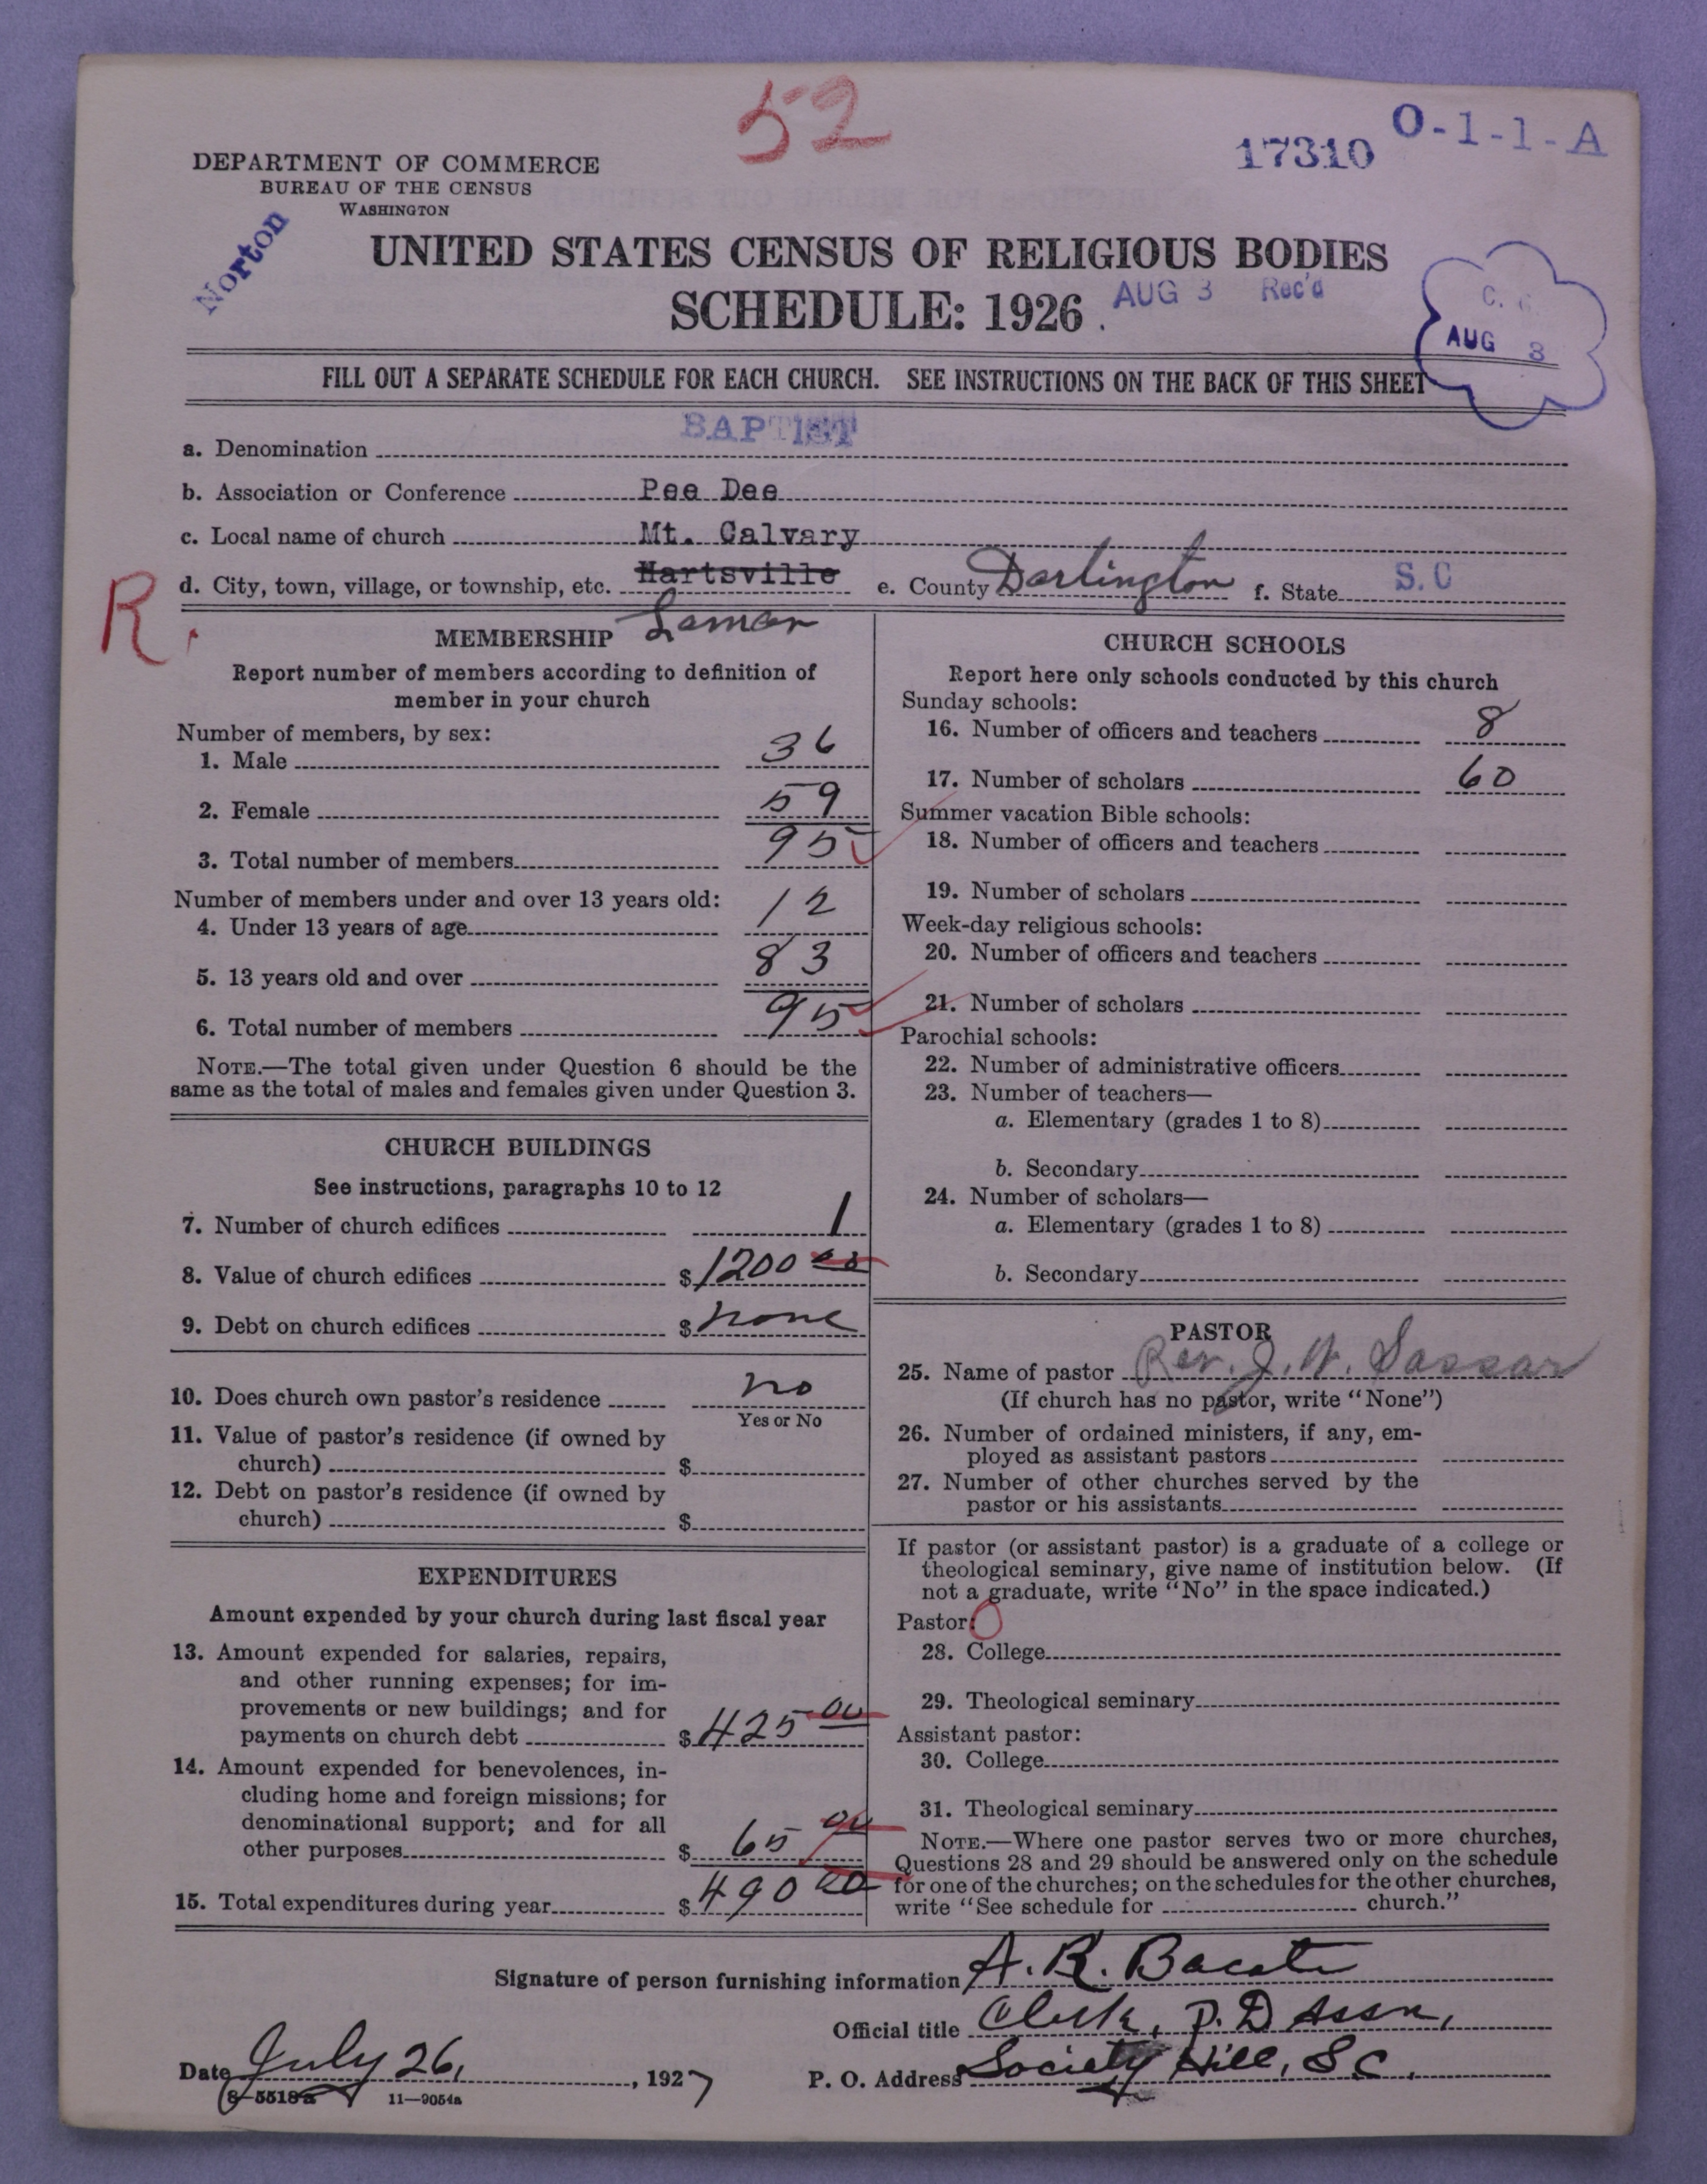 52
17310 O-1-1-A
DEPARTMENT OF COMMERCE
BUREAU OF THE CENSUS
WASHINGTON
Norton
UNITED STATES CENSUS OF RELIGIOUS BODIES
SCHEDULE: 1926
AUG 3 Rec'd
AUG 3
FILL OUT A SEPARATE SCHEDULE FOR EACH CHURCH. SEE INSTRUCTIONS ON THE BACK OF THIS SHEET
a. Denomination BAPTIST
b. Association or Conference Pee Dee
c. Local name of church Mt. Calvary
d. City, town, village, or township, etc. Hartsville e. County Darlington f. State S.C
R.
Lamar
MEMBERSHIP
Report number of members according to definition of
member in your church
Number of members, by sex:
1. Male 36
2. Female 59
3. Total number of members 95
Number of members under and over 13 years old:
4. Under 13 years of age 12
5. 13 years old and over 83
6. Total number of members 95
NOTE.—The total given under Question 6 should be the
same as the total of males and females given under Question 3.
CHURCH BUILDINGS
See instructions, paragraphs 10 to 12
7. Number of church edifices 1
8. Value of church edifices $1200 00
9. Debt on church edifices $ none
10. Does church own pastor's residence no
Yes or No
11. Value of pastor's residence (if owned by
church) $
12. Debt on pastor's residence (if owned by
church) $
EXPENDITURES
Amount expended by your church during last fiscal year
13. Amount expended for salaries, repairs,
and other running expenses; for im-
provements or new buildings; and for
payments on church debt $425 00
14. Amount expended for benevolences, in-
cluding home and foreign missions; for
denominational support; and for all
other purposes $ 65 00
15. Total expenditures during year $490 00
CHURCH SCHOOLS
Report here only schools conducted by this church
Sunday schools:
16. Number of officers and teachers 8
17. Number of scholars 60
Summer vacation Bible schools:
18. Number of officers and teachers
19. Number of scholars
Week-day religious schools:
20. Number of officers and teachers
21. Number of scholars
Parochial schools:
22. Number of administrative officers
23. Number of teachers—
a. Elementary (grades 1 to 8)
b. Secondary
24. Number of scholars—
a. Elementary (grades 1 to 8)
b. Secondary
PASTOR
25. Name of pastor Rev. J. W. Sassar
(If church has no pastor, write "None")
26. Number of ordained ministers, if any, em-
ployed as assistant pastors
27. Number of other churches served by the
pastor or his assistants
If pastor (or assistant pastor) is a graduate of a college or
theological seminary, give name of institution below. (If
not a graduate, write "No" in the space indicated.)
Pastor: O
28. College
29. Theological seminary
Assistant pastor:
30. College
31. Theological seminary
NOTE.—Where one pastor serves two or more churches,
Questions 28 and 29 should be answered only on the schedule
for one of the churches; on the schedules for the other churches,
write "See schedule for church."
Signature of person furnishing information A. R. Bacote
Official title Clerk, P. D Assn,
Date July 26, 1927 P. O. Address Society Hill, S C.
8-5518a 11—9054a